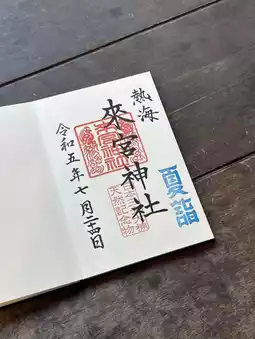 熱海
夏詣
來宮神社
天然記念物
令和五年七月二十四日